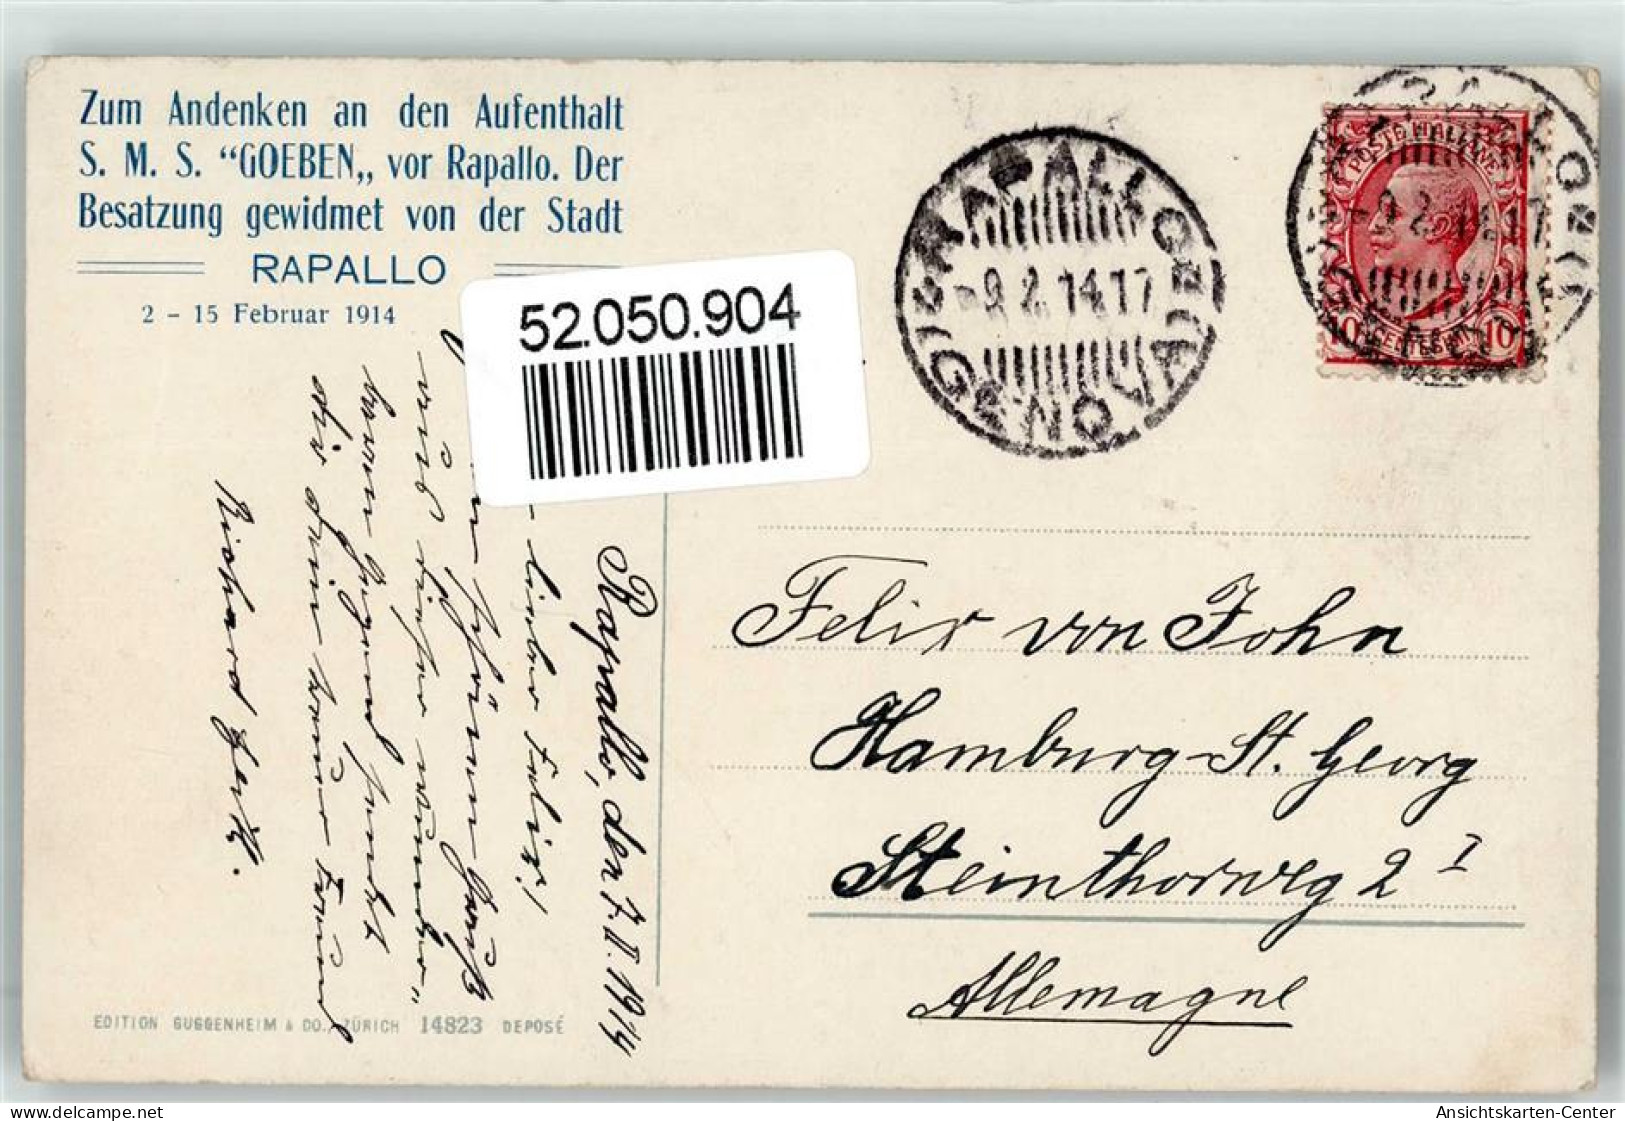 Zum Andenken an den Aufenthalt
S. M. S. “GOEBEN„ vor Rapallo. Der
Besatzung gewidmet von der Stadt
RAPALLO
2 – 15 Februar 1914
52.050.904
RAPALLO
9.2.14.17
GENOVA
POSTE ITALIANE
10 10
Rapallo, den 7.II.1914
lieber Felix!
schönen Gruß
und
von
dir dein treuer Freund
Richard
Felix von John
Hamburg-St. Georg
Steinthorweg 2 I
Allemagne
EDITION GUGGENHEIM & CO., ZÜRICH 14823 DEPOSÉ
Ansichtskarten-Center